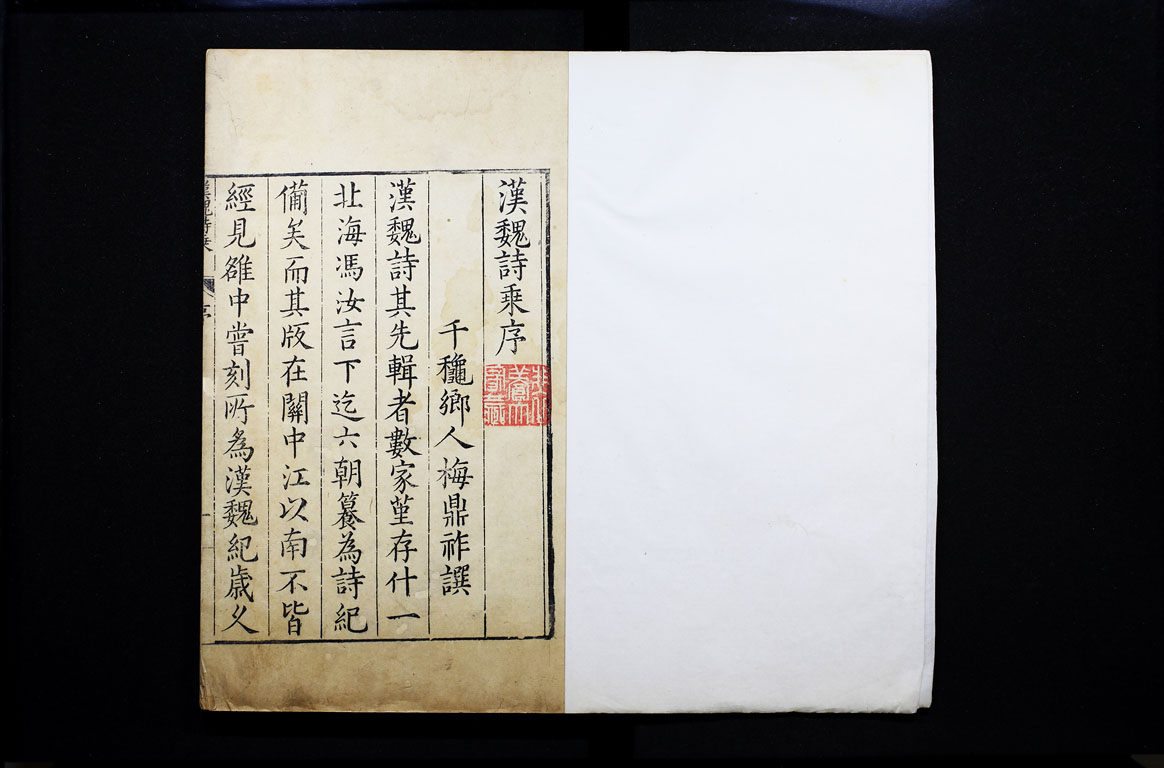 漢魏詩乘序
千龝鄉人梅鼎祚譔
漢魏詩其先輯者數家堇存什一
北海馮汝言下迄六朝纂為詩紀
僃矣而其版在關中江以南不皆
經見雒中嘗刻所為漢魏紀歲久
漢魏詩乘
序
一